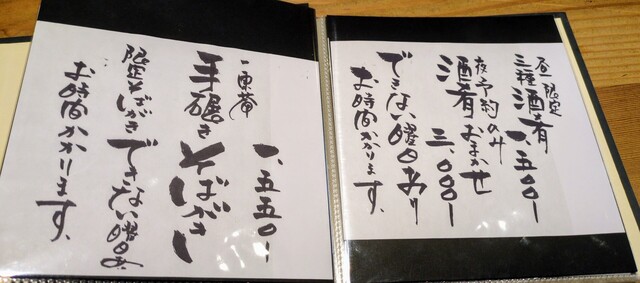 昼限定
三種酒肴 一、五〇〇ー
夜予約のみ
酒肴おまかせ
三、〇〇〇ー
できない曜日あり
お時間かかります。
一、五五〇ー
手碾きそばがき
限定そばがきできない曜日あ
お時間かかります。